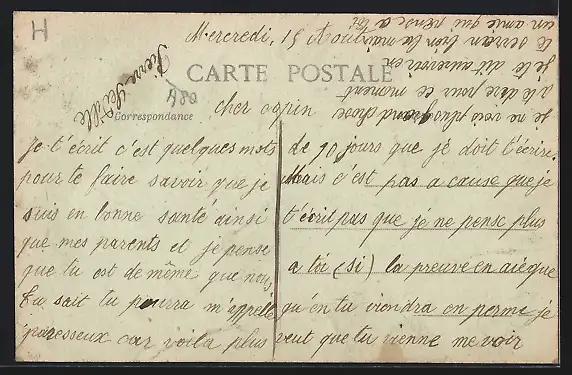 H
Mercredi, 15 Août
CARTE POSTALE
A80
Correspondance
cher copin
je t'écrit c'est quelques mots
pour te faire savoir que je
suis en bonne santé ainsi
que mes parents et je pense
que tu est de même que nous
Tu sait tu pourra m'appelle
paresseux car voila plus
de 90 jours que je doit t'écrire.
Mais c'est pas a cause que je
t'écrit pas que je ne pense plus
a toi (si) la preuve en ai que
qu'en tu viendra en perme je
veut que tu vienne me voir
je ne vois plus grand chose
a te dire pour ce moment
je te dit aurevoir en
te serran bien la main
un amie qui pense a toi
Pierre